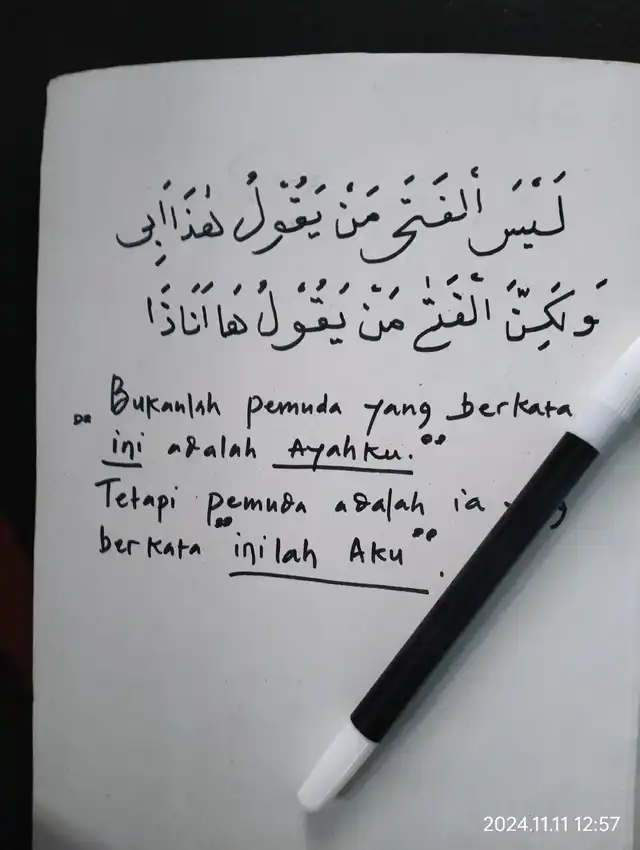 لَيْسَ الْفَتَى مَنْ يَقُوْلُ هٰذَا أَبِى
وَلَكِنَّ الْفَتٰى مَنْ يَقُوْلُ هَا اَنَاذَا
„ Bukanlah pemuda yang berkata
ini adalah Ayahku."
Tetapi pemuda adalah ia
berkata "inilah Aku".
2024.11.11 12:57